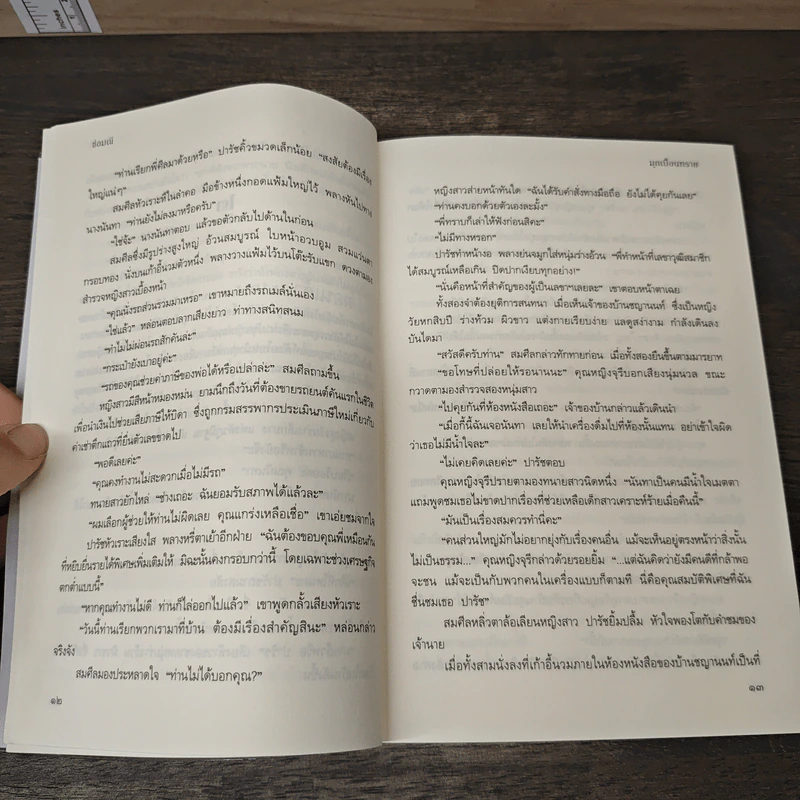 ช่อมณี
“ท่านเรียกพี่ศีลมาด้วยหรือ” ปารัชคิ้วขมวดเล็กน้อย “สงสัยต้องมีเรื่อง
ใหญ่แน่ๆ”
สมศีลหัวเราะที่ในลำคอ มือข้างหนึ่งกอดแฟ้มใหญ่ไว้ พลางหันไปทาง
นางนันทา “ท่านยังไม่ลงมาหรือครับ”
“ใช่จ้ะ” นางนันทาตอบ แล้วขอตัวกลับไปด้านในก่อน
สมศีลซึ่งมีรูปร่างสูงใหญ่ อ้วนสมบูรณ์ ใบหน้าอวบอูม สวมแว่นตา
กรอบทอง นั่งบนเก้าอี้นวมตัวหนึ่ง พลางวางแฟ้มไว้บนโต๊ะรับแขก ดวงตามอง
สำรวจหญิงสาวเบื้องหน้า
“คุณนั่งรถส่วนรวมมาเหรอ” เขาหมายถึงรถเมล์นั่นเอง
“ใช่แล้ว” หล่อนตอบลากเสียงยาว ท่าทางสนิทสนม
“ทำไมไม่ผ่อนรถสักคันล่ะ”
“กระเป๋ายังเบาอยู่ค่ะ”
“รถของคุณช่วยค่าภาษีของพ่อได้หรือเปล่าล่ะ” สมศีลถามขึ้น
หญิงสาวมีสีหน้าหมองหม่น ยามนึกถึงวันที่ต้องขายรถยนต์คันแรกในชีวิต
เพื่อนำเงินไปช่วยเสียภาษีให้บิดา ซึ่งถูกกรมสรรพากรประเมินภาษีใหม่เกี่ยวกับ
ค่าเช่าตึกแถวที่ยื่นตัวเลขขาดไป
“พอดีเลยค่ะ”
“คุณคงทำงานไม่สะดวกเมื่อไม่มีรถ”
ทนายสาวยักไหล่ “ช่างเถอะ ฉันยอมรับสภาพได้แล้วละ”
“ผมเลือกผู้ช่วยให้ท่านไม่ผิดเลย คุณแกร่งเหลือเชื่อ” เขาเอ่ยชมจากใจ
ปารัชหัวเราะเสียงใส พลางหรี่ตาเย้าอีกฝ่าย “ฉันต้องขอบคุณพี่เหมือนกัน
ที่หยิบยื่นรายได้พิเศษเพิ่มเติมให้ มิฉะนั้นคงกรอบกว่านี้ โดยเฉพาะช่วงเศรษฐกิจ
ตกต่ำแบบนี้”
“หากคุณทำงานไม่ดี ท่านก็ไล่ออกไปแล้ว” เขาพูดกลั้วเสียงหัวเราะ
“วันนี้ท่านเรียกพวกเรามาที่บ้าน ต้องมีเรื่องสำคัญสินะ” หล่อนกล่าว
จริงจัง
สมศีลมองประหลาดใจ “ท่านไม่ได้บอกคุณ?”
๑๒
มุกเปื้อนทราย
หญิงสาวส่ายหน้าทันใด “ฉันได้รับคำสั่งทางมือถือ ยังไม่ได้คุยกันเลย”
“ท่านคงบอกด้วยตัวเองละมั้ง”
“พี่ทราบก็เล่าให้ฟังก่อนสิคะ”
“ไม่มีทางหรอก”
ปารัชทำหน้างอ พลางย่นจมูกใส่หนุ่มร่างอ้วน “พี่ทำหน้าที่เลขาวุฒิสมาชิก
ได้สมบูรณ์เหลือเกิน ปิดปากเงียบทุกอย่าง!”
“นั่นคือหน้าที่สำคัญของผู้เป็นเลขาฯเลยละ” เขาตอบหน้าตาเฉย
ทั้งสองจำต้องยุติการสนทนา เมื่อเห็นเจ้าของบ้านชญานนท์ ซึ่งเป็นหญิง
วัยหกสิบปี ร่างท้วม ผิวขาว แต่งกายเรียบง่าย แลดูสง่างาม กำลังเดินลง
บันไดมา
“สวัสดีครับท่าน” สมศีลกล่าวทักทายก่อน เมื่อทั้งสองยืนขึ้นตามมารยาท
“ขอโทษที่ปล่อยให้รอนานนะ” คุณหญิงจุรีบอกเสียงนุ่มนวล ขณะ
กวาดตามองสำรวจสองหนุ่มสาว
“ไปคุยกันที่ห้องหนังสือเถอะ” เจ้าของบ้านกล่าวแล้วเดินนำ
“เมื่อกี้นี้ฉันเจอนันทา เลยให้นำเครื่องดื่มไปที่ห้องนั้นแทน อย่าเข้าใจผิด
ว่าเธอไม่มีน้ำใจละ”
“ไม่เคยคิดเลยค่ะ” ปารัชตอบ
คุณหญิงจุรีปรายตามองทนายสาวนิดหนึ่ง “นันทาเป็นคนมีน้ำใจเมตตา
แถมพูดชมเธอไม่ขาดปากเรื่องที่ช่วยเหลือเด็กสาวเคราะห์ร้ายเมื่อคืนนี้”
“มันเป็นเรื่องสมควรทำนี่คะ”
“คนส่วนใหญ่มักไม่อยากยุ่งกับเรื่องคนอื่น แม้จะเห็นอยู่ตรงหน้าว่าสิ่งนั้น
ไม่เป็นธรรม...” คุณหญิงจุรีกล่าวด้วยรอยยิ้ม “...แต่ฉันคิดว่ายังมีคนดีที่กล้าพอ
จะชน แม้จะเป็นกับพวกคนในเครื่องแบบก็ตามที นี่คือคุณสมบัติพิเศษที่ฉัน
ชื่นชมเธอ ปารัช”
สมศีลหลิ่วตาล้อเลียนหญิงสาว ปารัชยิ้มปลื้ม หัวใจพองโตกับคำชมของ
เจ้านาย
เมื่อทั้งสามนั่งลงที่เก้าอี้นวมภายในห้องหนังสือของบ้านชญานนท์เป็นที่
๑๓